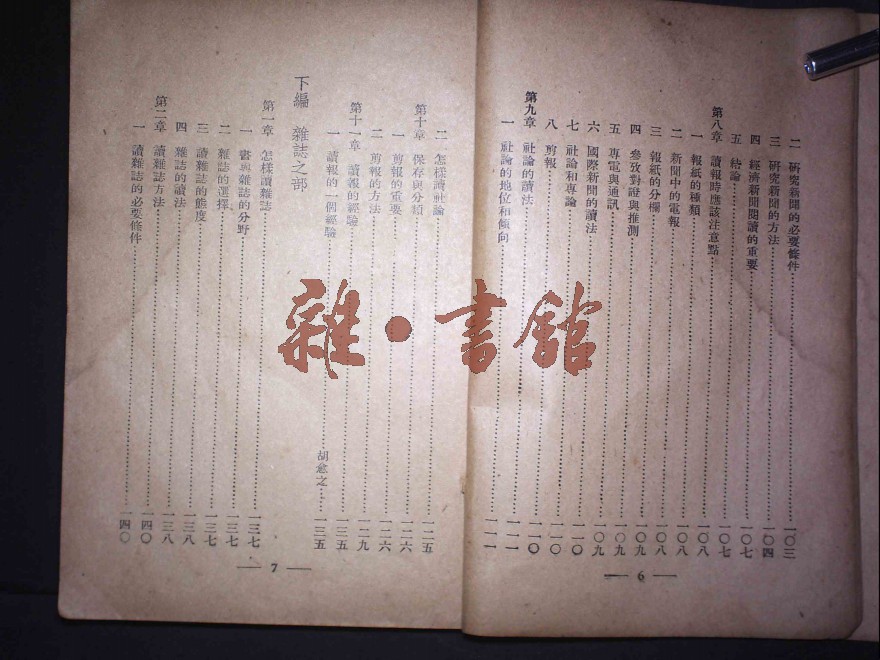 二 研究新聞的必要條件…………一〇三
三 研究新聞的方法…………一〇四
四 經濟新聞閱讀的重要…………一〇七
五 結論…………一〇七
第八章 讀報時應該注意點…………一〇八
一 報紙的種類…………一〇八
二 新聞中的電報…………一〇八
三 報紙的分欄…………一〇八
四 參攷對證與推測…………一〇九
五 專電與通訊…………一〇九
六 國際新聞的讀法…………一〇九
七 社論和專論…………一一〇
八 剪報…………一一〇
第九章 社論的讀法…………一一〇
一 社論的地位和傾向…………一一一
— 6 —
二 怎樣讀社論…………一二五
第十章 保存與分類…………一二六
一 剪報的重要…………一二六
二 剪報的方法…………一二九
第十一章 讀報的經驗…………一三五
一 讀報的一個經驗…………胡愈之…一三五
下編 雜誌之部
第一章 怎樣讀雜誌…………一三七
一 書與雜誌的分野…………一三七
二 雜誌的選擇…………一三七
三 讀雜誌的態度…………一三七
四 雜誌的讀法…………一三八
第二章 讀雜誌方法…………一四〇
一 讀雜誌的必要條件…………一四〇
— 7 —
雜·書館